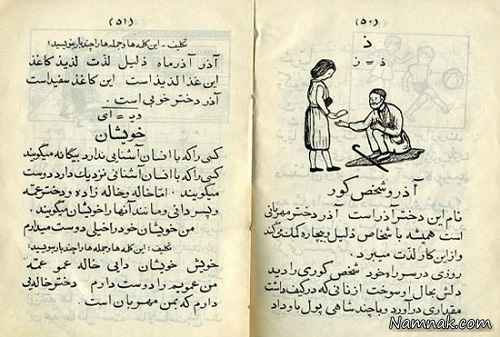 (۵۰)
ذ
ذ = ز
آذر و شخص کور
نام این دختر آذر است آذر دختر مهربانی
است همیشه با شخاص ذلیل و بیچاره کمک می کند
و از این کار لذت میبرد.
روزی در سر راه خود شخص کوری را دید
دلش بحال او سوخت از نانی که در کیف داشت
مقداری درآورد و با چند شاهی پول باو داد
(۵۱)
تکلیف - این کلمه ها و جمله ها را چند بار بنویسید؛
آذر آذرماه ذلیل لذت لذیذ کاغذ
این غذا لذیذ است این کاغذ سفید است
آذر دختر خوبی است.
ای
خویشان
کسی را که با انسان آشنایی ندارد بیگانه میگویند
کسی را که با انسان آشنائی نزدیک دارد دوست
میگویند. اما خاله و خاله زاده و دختر عمه
و پسر دائی و مانند آنها را خویشان میگویند:
من خویشان خود را خیلی دوست میدارم
تکلیف: این کلمه ها و جمله ها را چند بار بنویسید:
خویش خویشان دایی خاله عمو عمّه
من عمویم را دوست دارم دختر خاله یی
دارم که بمن مهربان است.
Namnak.com